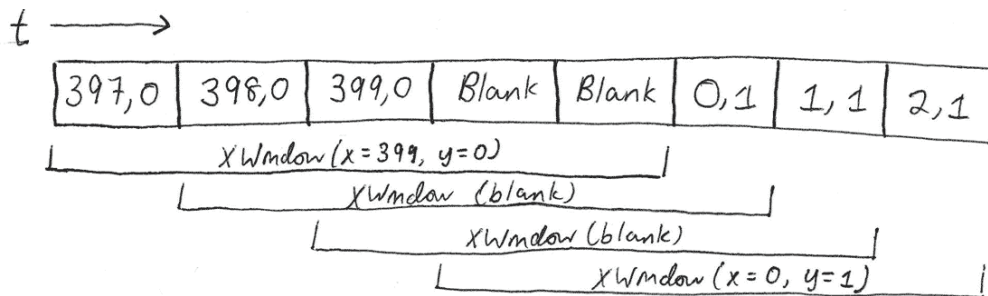 t
397,0 398,0 399,0 Blank Blank 0,1 1,1 2,1
XWindow (x=399, y=0)
XWindow (blank)
XWindow (blank)
XWindow (x=0, y=1)